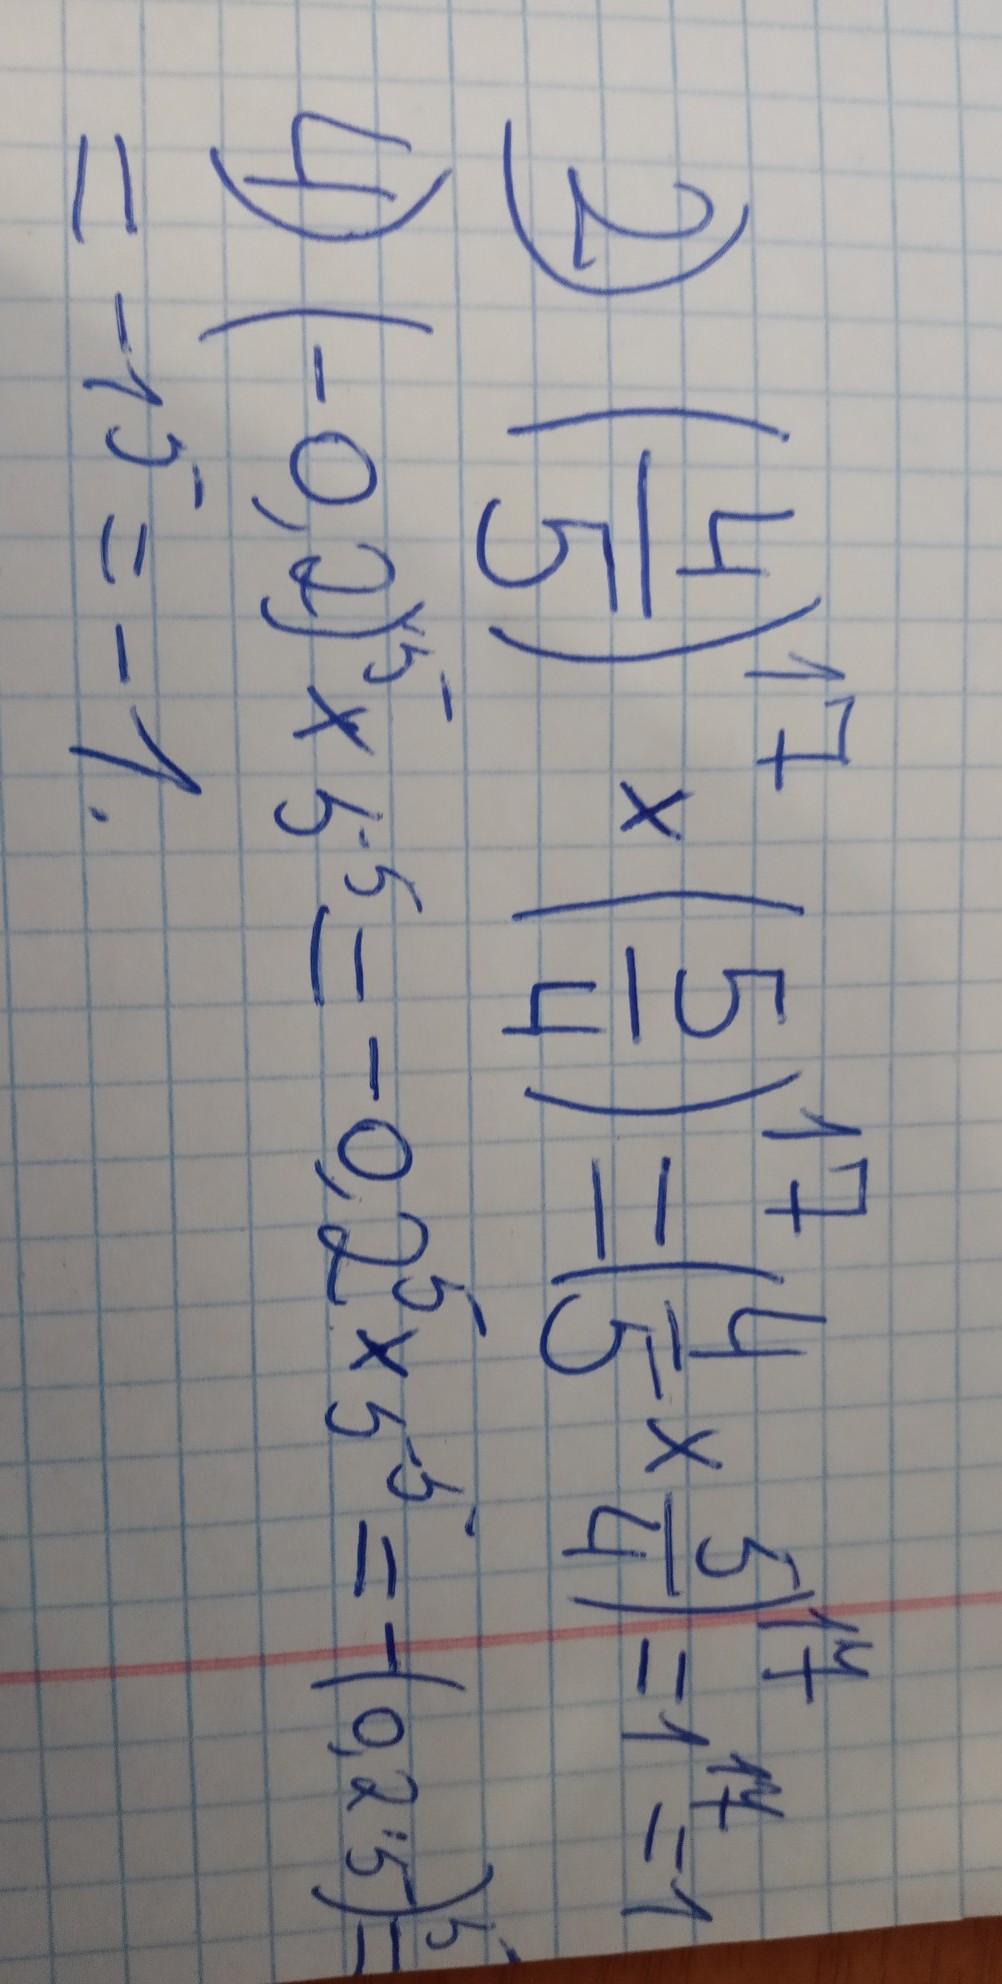 2) (4/5)^17 x (5/4)^17 = (4/5 x 5/4)^17 = 1^17 = 1
4) (-0,2)^5 x 5^5 = -0,2^5 x 5^5 = -(0,2·5)^5 =
= -1^5 = -1.